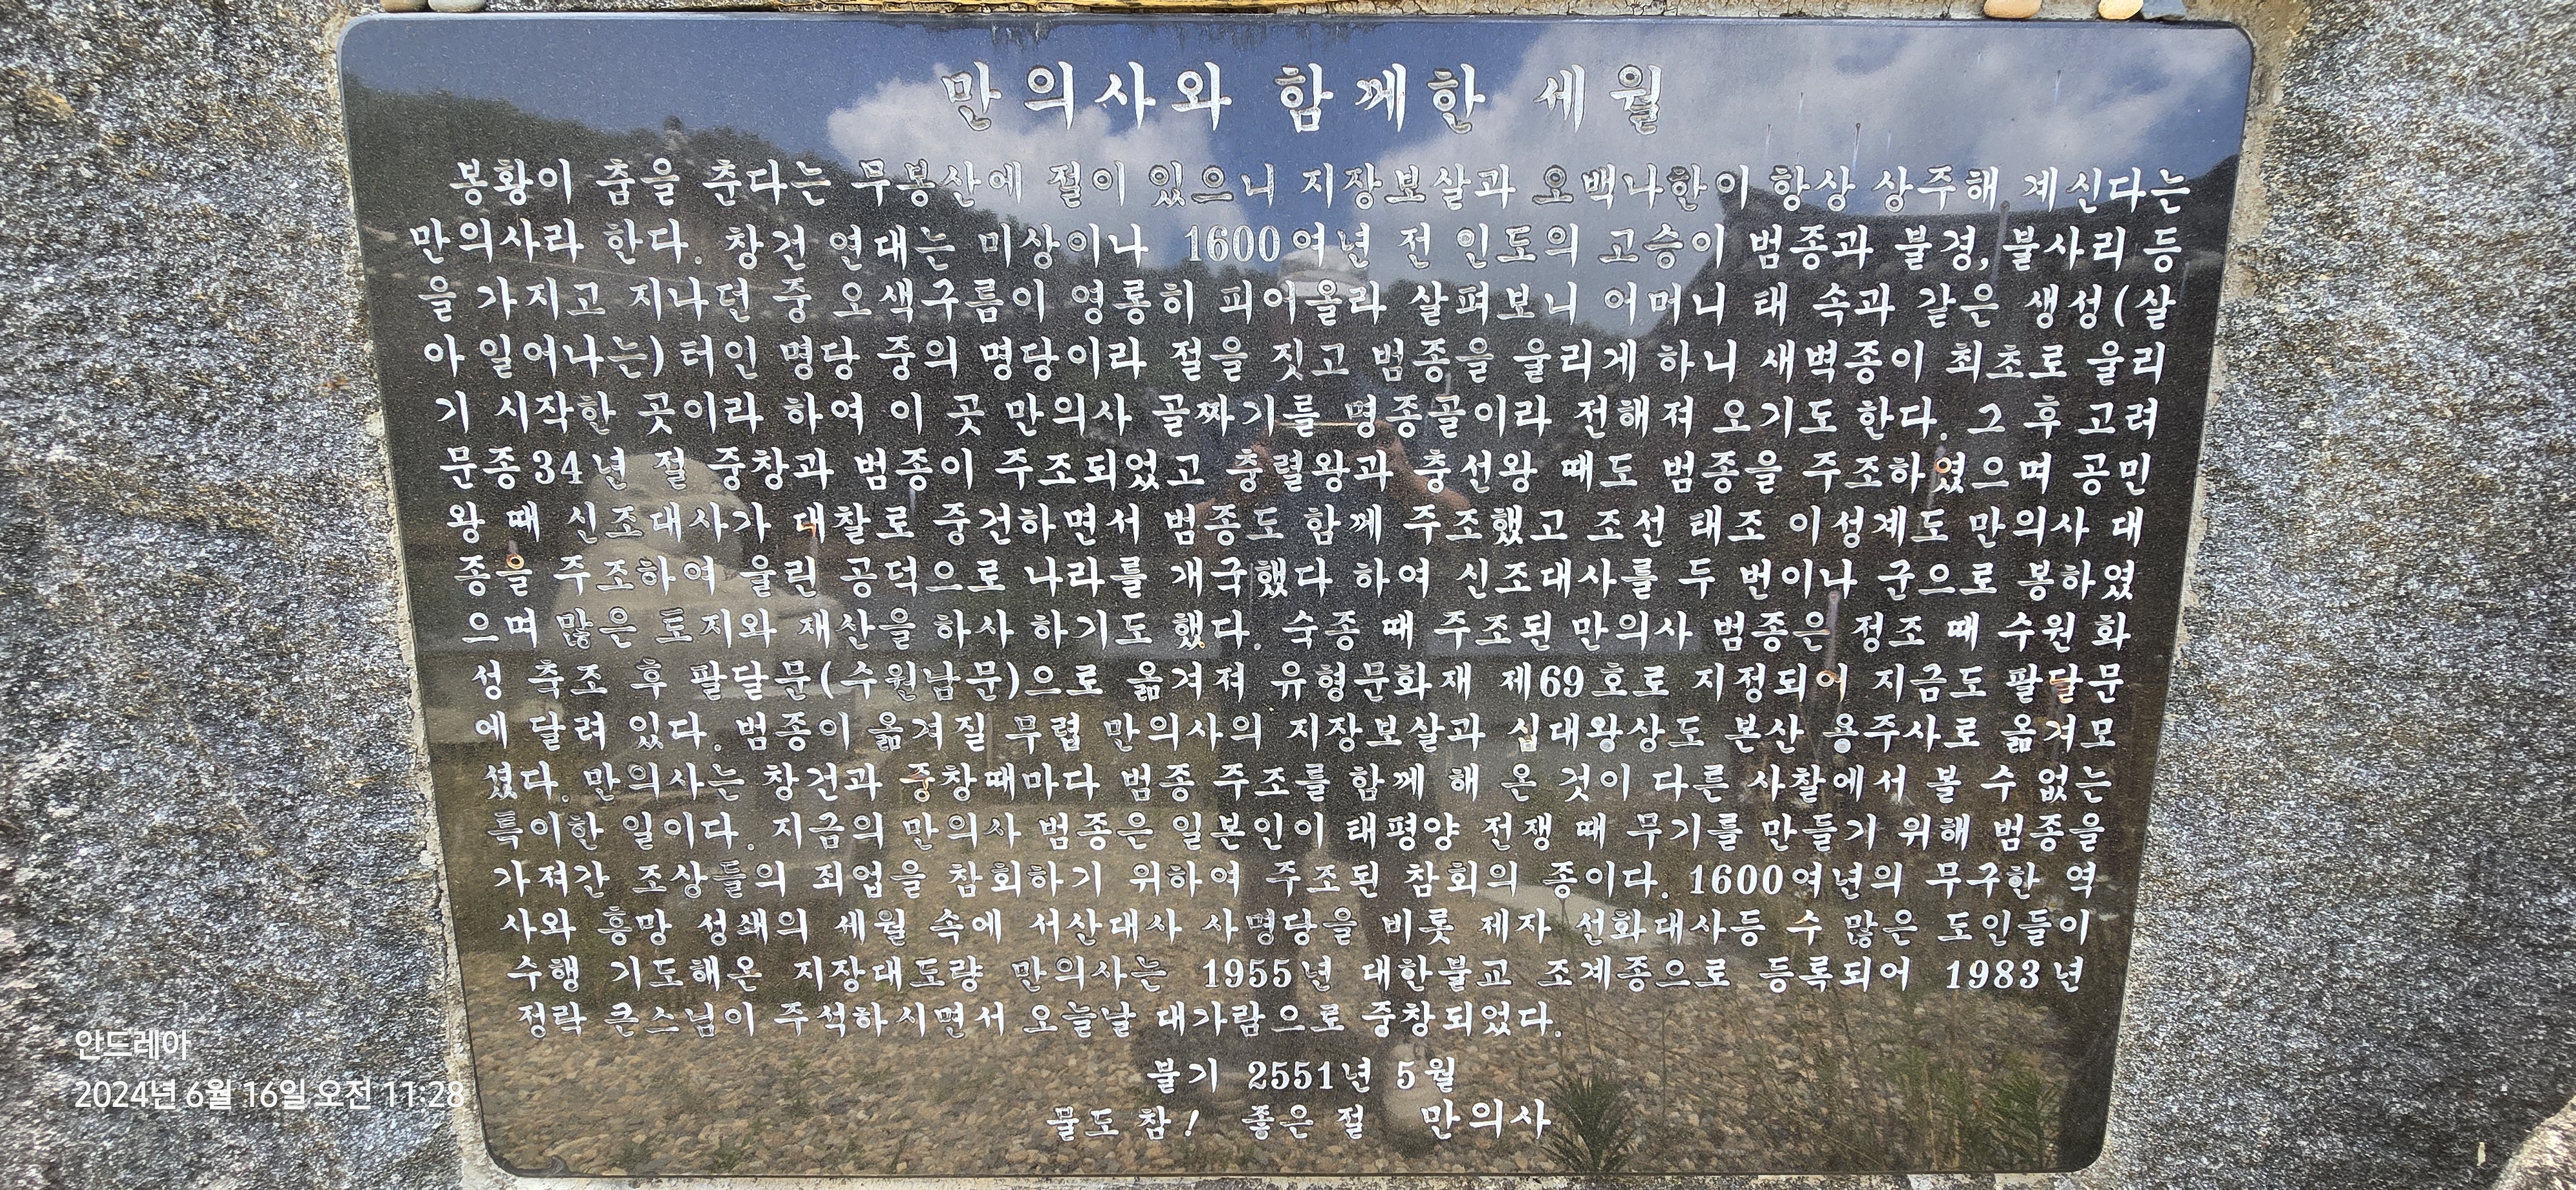 만의사와 함께한 세월
봉황이 춤을 춘다는 무봉산에 절이 있으니 지장보살과 오백나한이 항상 상주해 계신다는
만의사라 한다. 창건 연대는 미상이나 1600여년 전 인도의 고승이 범종과 불경, 불사리 등
을 가지고 지나던 중 오색구름이 영롱히 피어올라 살펴보니 어머니 태 속과 같은 생성(살
아 일어나는)터인 명당 중의 명당이라 절을 짓고 범종을 울리게 하니 새벽종이 최초로 울리
기 시작한 곳이라 하여 이 곳 만의사 골짜기를 명종골이라 전해져 오기도 한다. 그 후 고려
문종34년 절 중창과 범종이 주조되었고 충렬왕과 충선왕 때도 범종을 주조하였으며 공민
왕 때 신조대사가 대찰로 중건하면서 범종도 함께 주조했고 조선 태조 이성계도 만의사 대
종을 주조하여 울린 공덕으로 나라를 개국했다 하여 신조대사를 두 번이나 군으로 봉하였
으며 많은 토지와 재산을 하사 하기도 했다. 숙종 때 주조된 만의사 범종은 정조 때 수원 화
성 축조 후 팔달문(수원남문)으로 옮겨져 유형문화재 제69호로 지정되어 지금도 팔달문
에 달려 있다. 범종이 옮겨질 무렵 만의사의 지장보살과 십대왕상도 본산 용주사로 옮겨모
셨다. 만의사는 창건과 중창때마다 범종 주조를 함께 해 온 것이 다른 사찰에서 볼 수 없는
특이한 일이다. 지금의 만의사 범종은 일본인이 태평양 전쟁 때 무기를 만들기 위해 범종을
가져간 조상들의 죄업을 참회하기 위하여 주조된 참회의 종이다. 1600여년의 무구한 역
사와 흥망 성쇄의 세월 속에 서산대사 사명당을 비롯 제자 선화대사등 수 많은 도인들이
수행 기도해온 지장대도량 만의사는 1955년 대한불교 조계종으로 등록되어 1983년
정락 큰스님이 주석하시면서 오늘날 대가람으로 중창되었다.
불기 2551년 5월
물도 참! 좋은 절 만의사
안드레아
2024년 6월 16일 오전 11:28